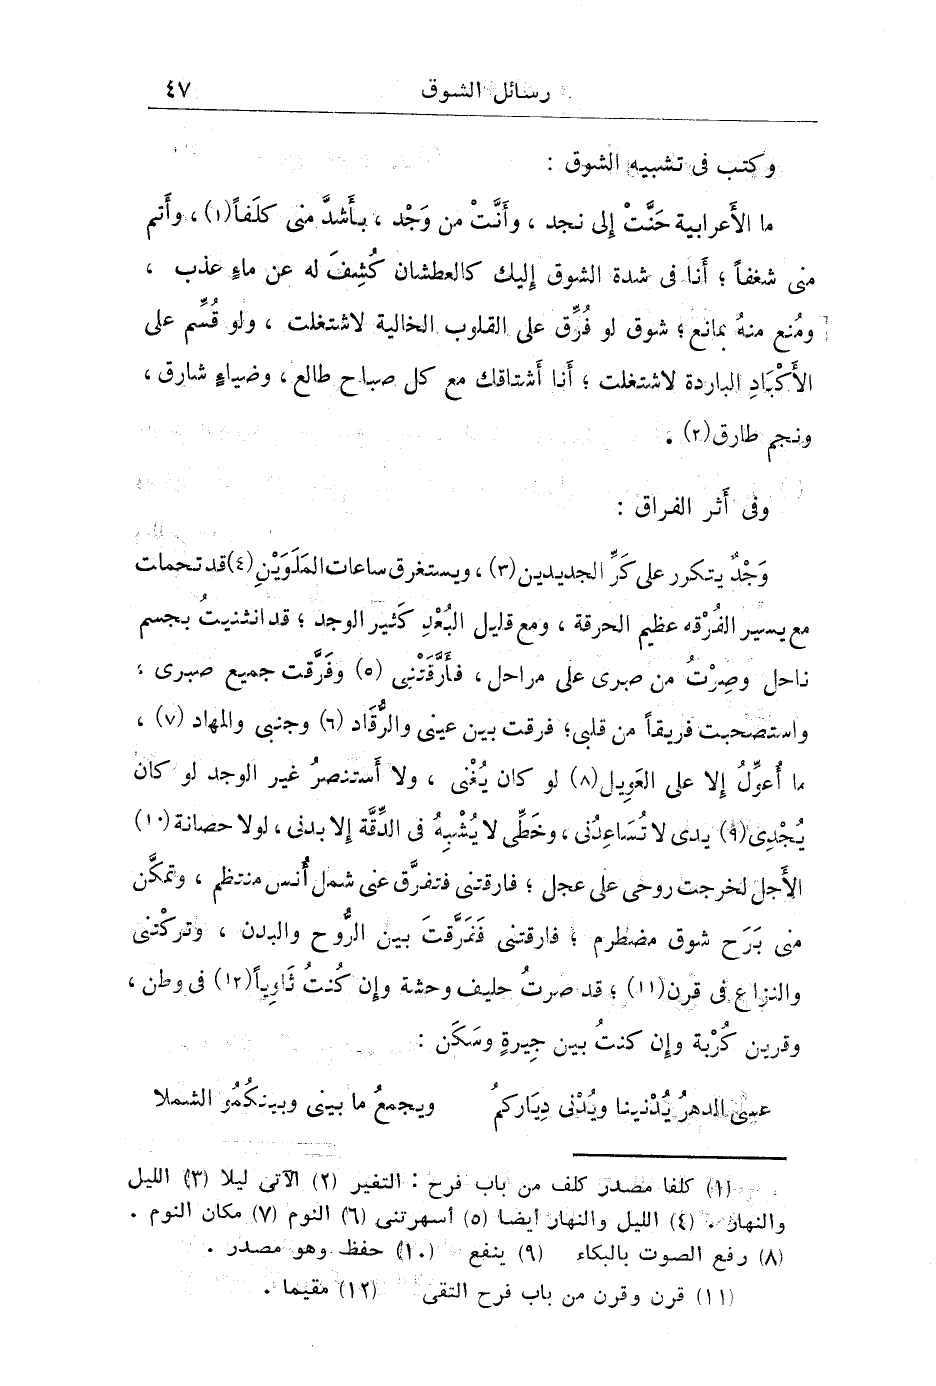 رسائل الشوق ٤٧
وكتب فى تشبيه الشوق :
ما الأَعرابية حَنَّتْ إلى نجد ، وأَنَّتْ من وَجْد ، بأَشدَّ منى كلَفاً(١) ، وأَتم
منى شغفاً ؛ أَنا فى شدة الشوق إليك كالعطشان كُشِفَ له عن ماءٍ عذب ،
ومُنع منهُ بمانع ؛ شوق لو فُرِّق على القلوب الخالية لاشتغلت ، ولو قُسِّم على
الأَكْبَادِ الباردة لاشتغلت ؛ أَنا أَشتاقك مع كل صباح طالع ، وضياءٍ شارق ،
ونجم طارق(٢) .
وفى أَثر الفراق :
وَجْدٌ يتكرر على كَرِّ الجديدين(٣) ، ويستغرق ساعات المَلَوَيْنِ(٤) قد تحملت
مع يسير الفُرْقه عظيم الحرقة ، ومع قليل البُعْدِ كَثير الوجد ؛ قد انثنيتُ بجسم
ناحل وصِرْتُ من صبرى على مراحل ، فأَرَّقَتْنِى (٥) وفَرَّقت جميع صبرى ؛
واستصحبت فريقاً من قلبى؛ فرقت بين عينى والرُّقَاد (٦) وجنبى والمهاد (٧) ،
ما أُعوِّلُ إلا على العَوِيل(٨) لو كان يُغْنى ، ولا أَستنصرُ غير الوجد لو كان
يُجْدِى(٩) يدى لا تُسَاعِدُنى ، وخَطِّى لا يُشْبِهُ فى الدِّقَّة إلا بدنى ، لولا حصانة(١٠)
الأَجل لخرجت روحى على عجل ؛ فارقتنى فتفرَّق عنى شمل أُنس منتظم ، وتمكَّن
منى بَرَح شوق مضطرم ؛ فارقتنى فَمَرَّقتَ بين الرُّوح والبدن ، وتركْتنى
والنزاع فى قرن(١١) ؛ قد صرتُ حليف وحشة وإن كُنتُ ثَاوِياً(١٢) فى وطن ،
وقرين كُرْبة وإن كنتُ بين جِيرةٍ وسَكَن :
عسَى الدهرُ يُدْنينا ويُدْنى دِيَاركمُ ويجمعُ ما بينى وبينكُمُو الشملا
(١) كلفا مصدر كلف من باب فرح : التفير (٢) الآتى ليلا (٣) الليل
والنهار . (٤) الليل والنهار أيضا (٥) أسهرتنى (٦) النوم (٧) مكان النوم .
(٨) رفع الصوت بالبكاء (٩) ينفع (١٠) حفظ وهو مصدر .
(١١) قرن وقرن من باب فرح التقى (١٢) مقيما .